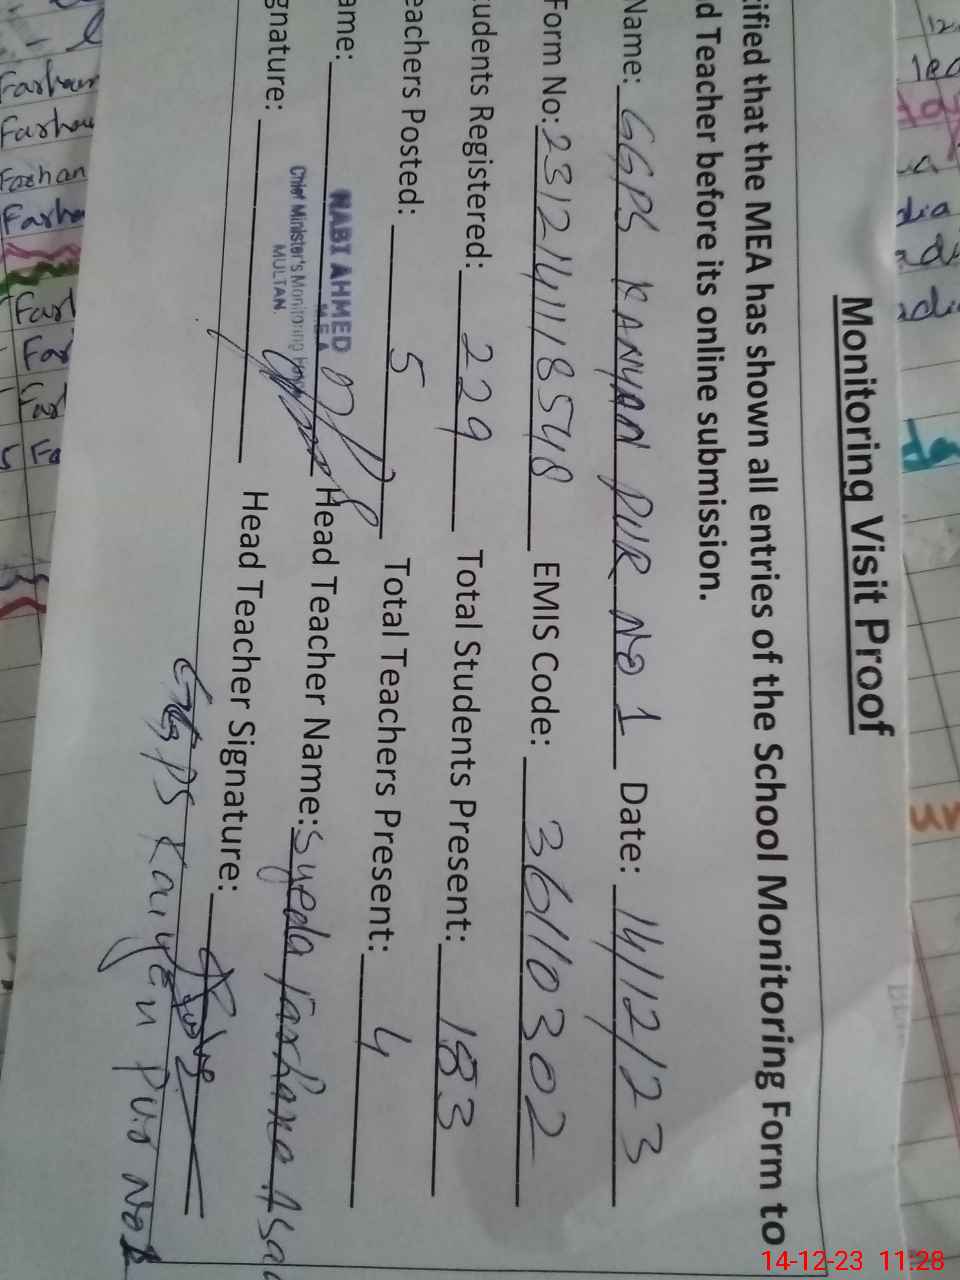 Monitoring Visit Proof
ified that the MEA has shown all entries of the School Monitoring Form to
d Teacher before its online submission.
Name: GGPS KANYAN PUR No 1 Date: 14/12/23
Form No: 2312141118548 EMIS Code: 36110302
udents Registered: 229 Total Students Present: 183
eachers Posted: 5 Total Teachers Present: 4
ame: NABI AHMED Head Teacher Name: Syeda Farhana Asa
MEA
Chief Minister's Monitoring
MULTAN
gnature: Head Teacher Signature:
GGPS Kanyan Pur No 1
Farhan
Farhan
Farhan
Farha
Farh
Far
Far
Fa
14-12-23 11:28